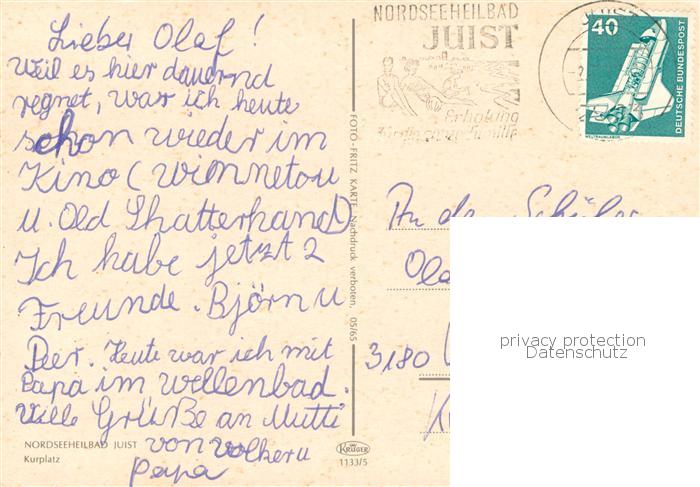 Lieber Olaf!
Weil es hier dauernd
regnet, war ich heute
schon wieder im
Kino (Winnetou
u. Old Shatterhand)
Ich habe jetzt 2
Freunde. Björn u
Peer. Heute war ich mit
Papa im Wellenbad.
Viele Grüße an Mutti
von Volker u
Papa
NORDSEEHEILBAD JUIST
Kurplatz
FOTO-FRITZ KARTE Nachdruck verboten. 05/65
KRÜGER
1133/5
NORDSEEHEILBAD
JUIST
Erholung
für die ganze Familie
40
DEUTSCHE BUNDESPOST
WELTRAUMLABOR
An den Schüler
Ola
3180
privacy protection
Datenschutz